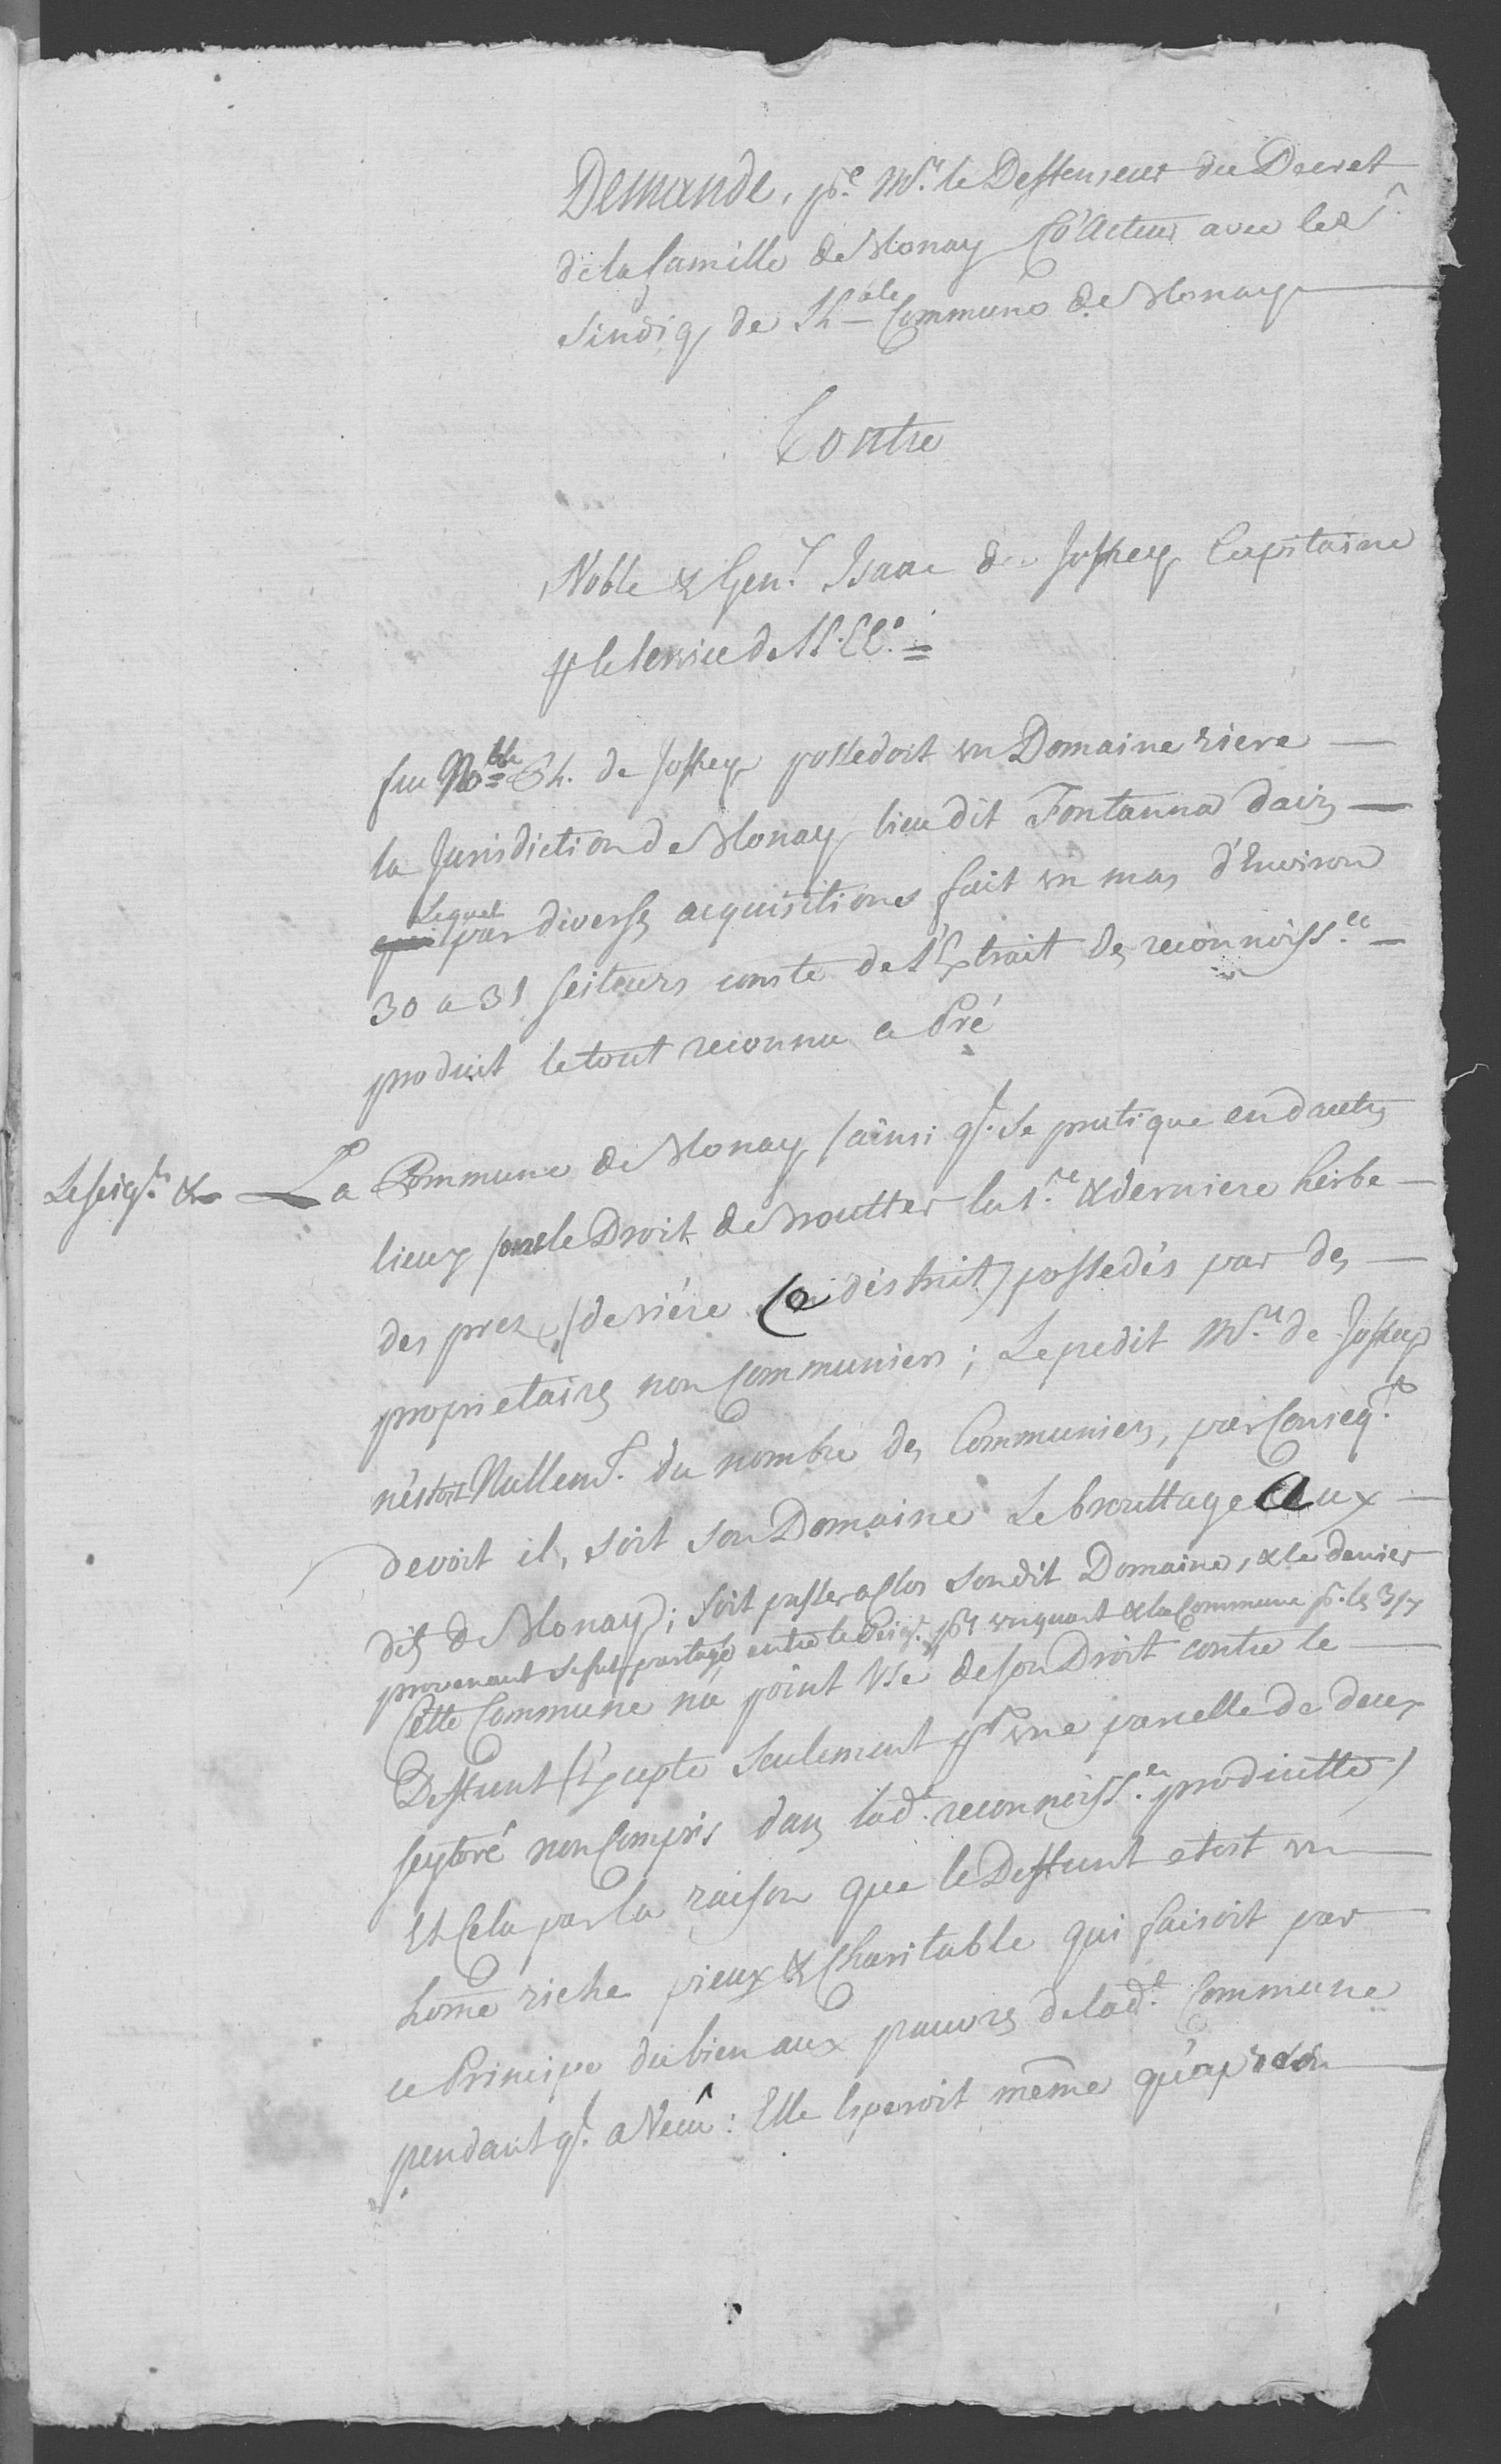 Demande, pr. Mr. le Deffenseur du Decret
de la famille de Blonay Co'Acteur avec le Sr.
Sindiq de Lh-ble Commune de Blonay
Contre
Noble & Gen.r Isaac de Joffrey Capitaine
pr le service de LL.EE.
feu Noble Ph. de Joffrey possedoit un Domaine riere
la Jurisdiction de Blonay lieu dit Fontanna Daiz
Lequel
par diverses acquisitions fait un mas d'Environ
30 a 31 seiteurs conste de l'Extrait des reconnoiss.ce
produit le tout reconnu a Pré
Le seig.r & La Commune de Blonay (ainsi q.l se pratique en dautres
lieux) ont le Droit de broutter la 1.re & derniere herbe
des prez (de riére le district) possedés par des
proprietaires non Communiers; Le predit Mr. de Joffrey
n'étoit Nullem.t du nombre des Communiers, par Conseq.t
devoit il, soit son Domaine Le brouttage aux
dits de Blonay; soit passer a Clos son dit Domaine, & le denier
provenant se fut partagé entre le Seig.r pr un quart & la Commune pr. les 3/4
Cette Commune n'a point Usé de son Droit contre le
Deffunt (Excepté seulement pr une parcelle de deux
seytoré non Compris dans lad.e reconnoiss.ce produitte)
Et Cela par la raison que le Deffunt etoit un
home riche pieux & Charitable qui faisoit par
ce Principe du bien aux pauvres de lad.e Commune
pendant q.l a Vecû: Elle Esperoit même qu'après son